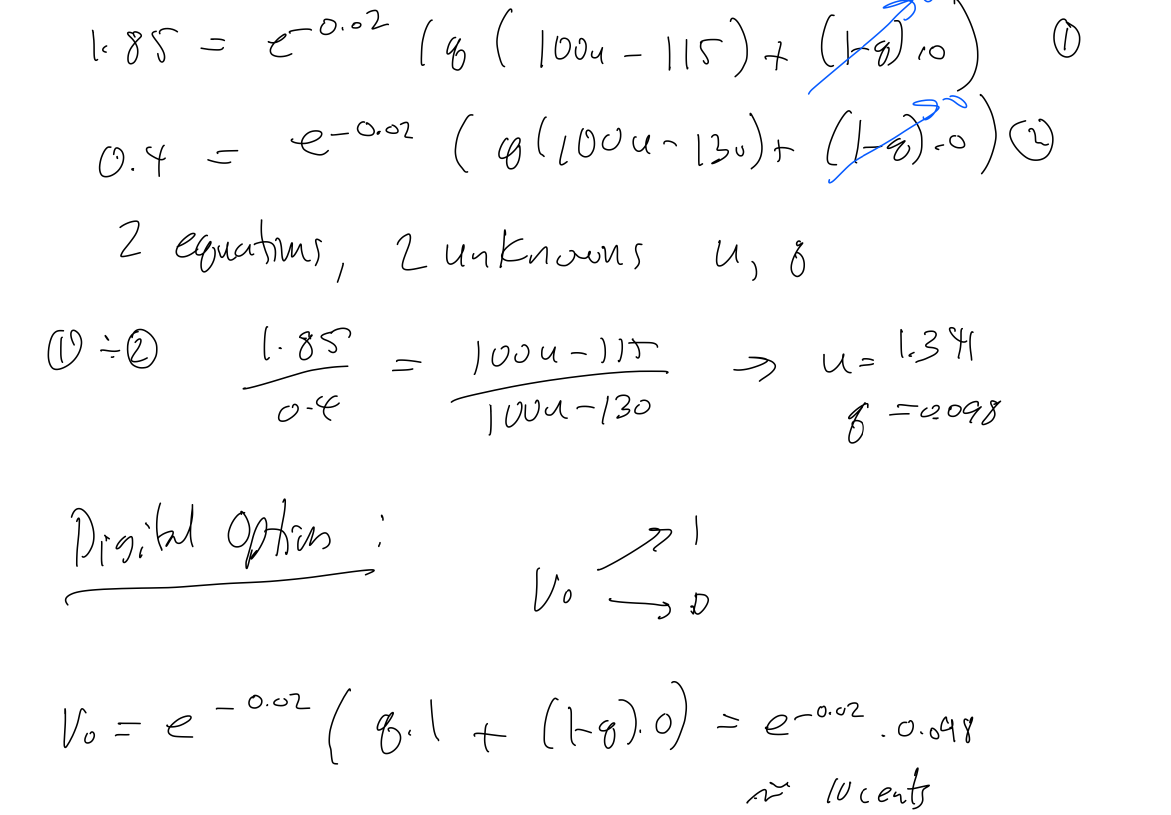 1.85 = e^{-0.02} ( q ( 100u - 115 ) + (1-q) . 0 ) → 0 ①
0.4 = e^{-0.02} ( q ( 100u - 130 ) + (1-q) . 0 ) → 0 ②
2 equations, 2 unknowns u, q
① ÷ ② 1.85 / 0.4 = 100u - 115 / 100u - 130 ⇒ u = 1.341
q = 0.098
Digital Option :
V₀ → 1
→ 0
V₀ = e^{-0.02} ( q . 1 + (1-q) . 0 ) = e^{-0.02} . 0.098
≈ 10 cents